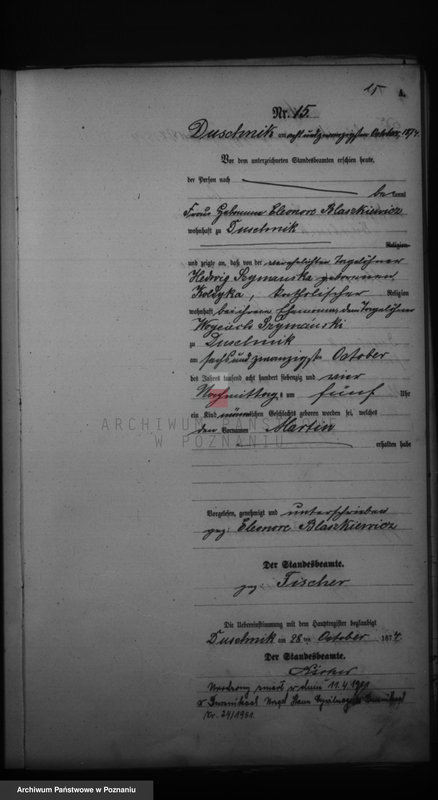 15
A.
Nr. 15.
Duschnik am acht und zwanzigsten October 1874.
Vor dem unterzeichneten Standesbeamten erschien heute,
der Person nach
be kannt
Frau Hebamme Eleonore Blaszkiewicz
wohnhaft zu Duschnik
Religion
und zeigte an, daß von der verehelichten Tagelöhner
Hedwig Szymanska geborenen
katholischer Religion
wohnhaft bei ihrem Ehemanne, dem Tagelöhner
Szymanski
zu Duschnik
am sechs und zwanzigsten October
des Jahres tausend acht hundert siebenzig und vier
Nachmittags um fünf Uhr
ein Kind männlichen Geschlechts geboren worden sei, welches
den Vornamen Martin
erhalten habe
ARCHIWUM PAŃSTWOWE
W POZNANIU
Vorgelesen, genehmigt und unterschrieben
gez: Eleonore Blaszkiewicz
Der Standesbeamte.
gez: Fischer
Die Uebereinstimmung mit dem Hauptregister beglaubigt
Duschnik am 28 ten October 1874.
Der Standesbeamte.
zmarł w dniu 11.4.1951
w Dusznikach
Nr. 24/1951
Archiwum Państwowe w Poznaniu